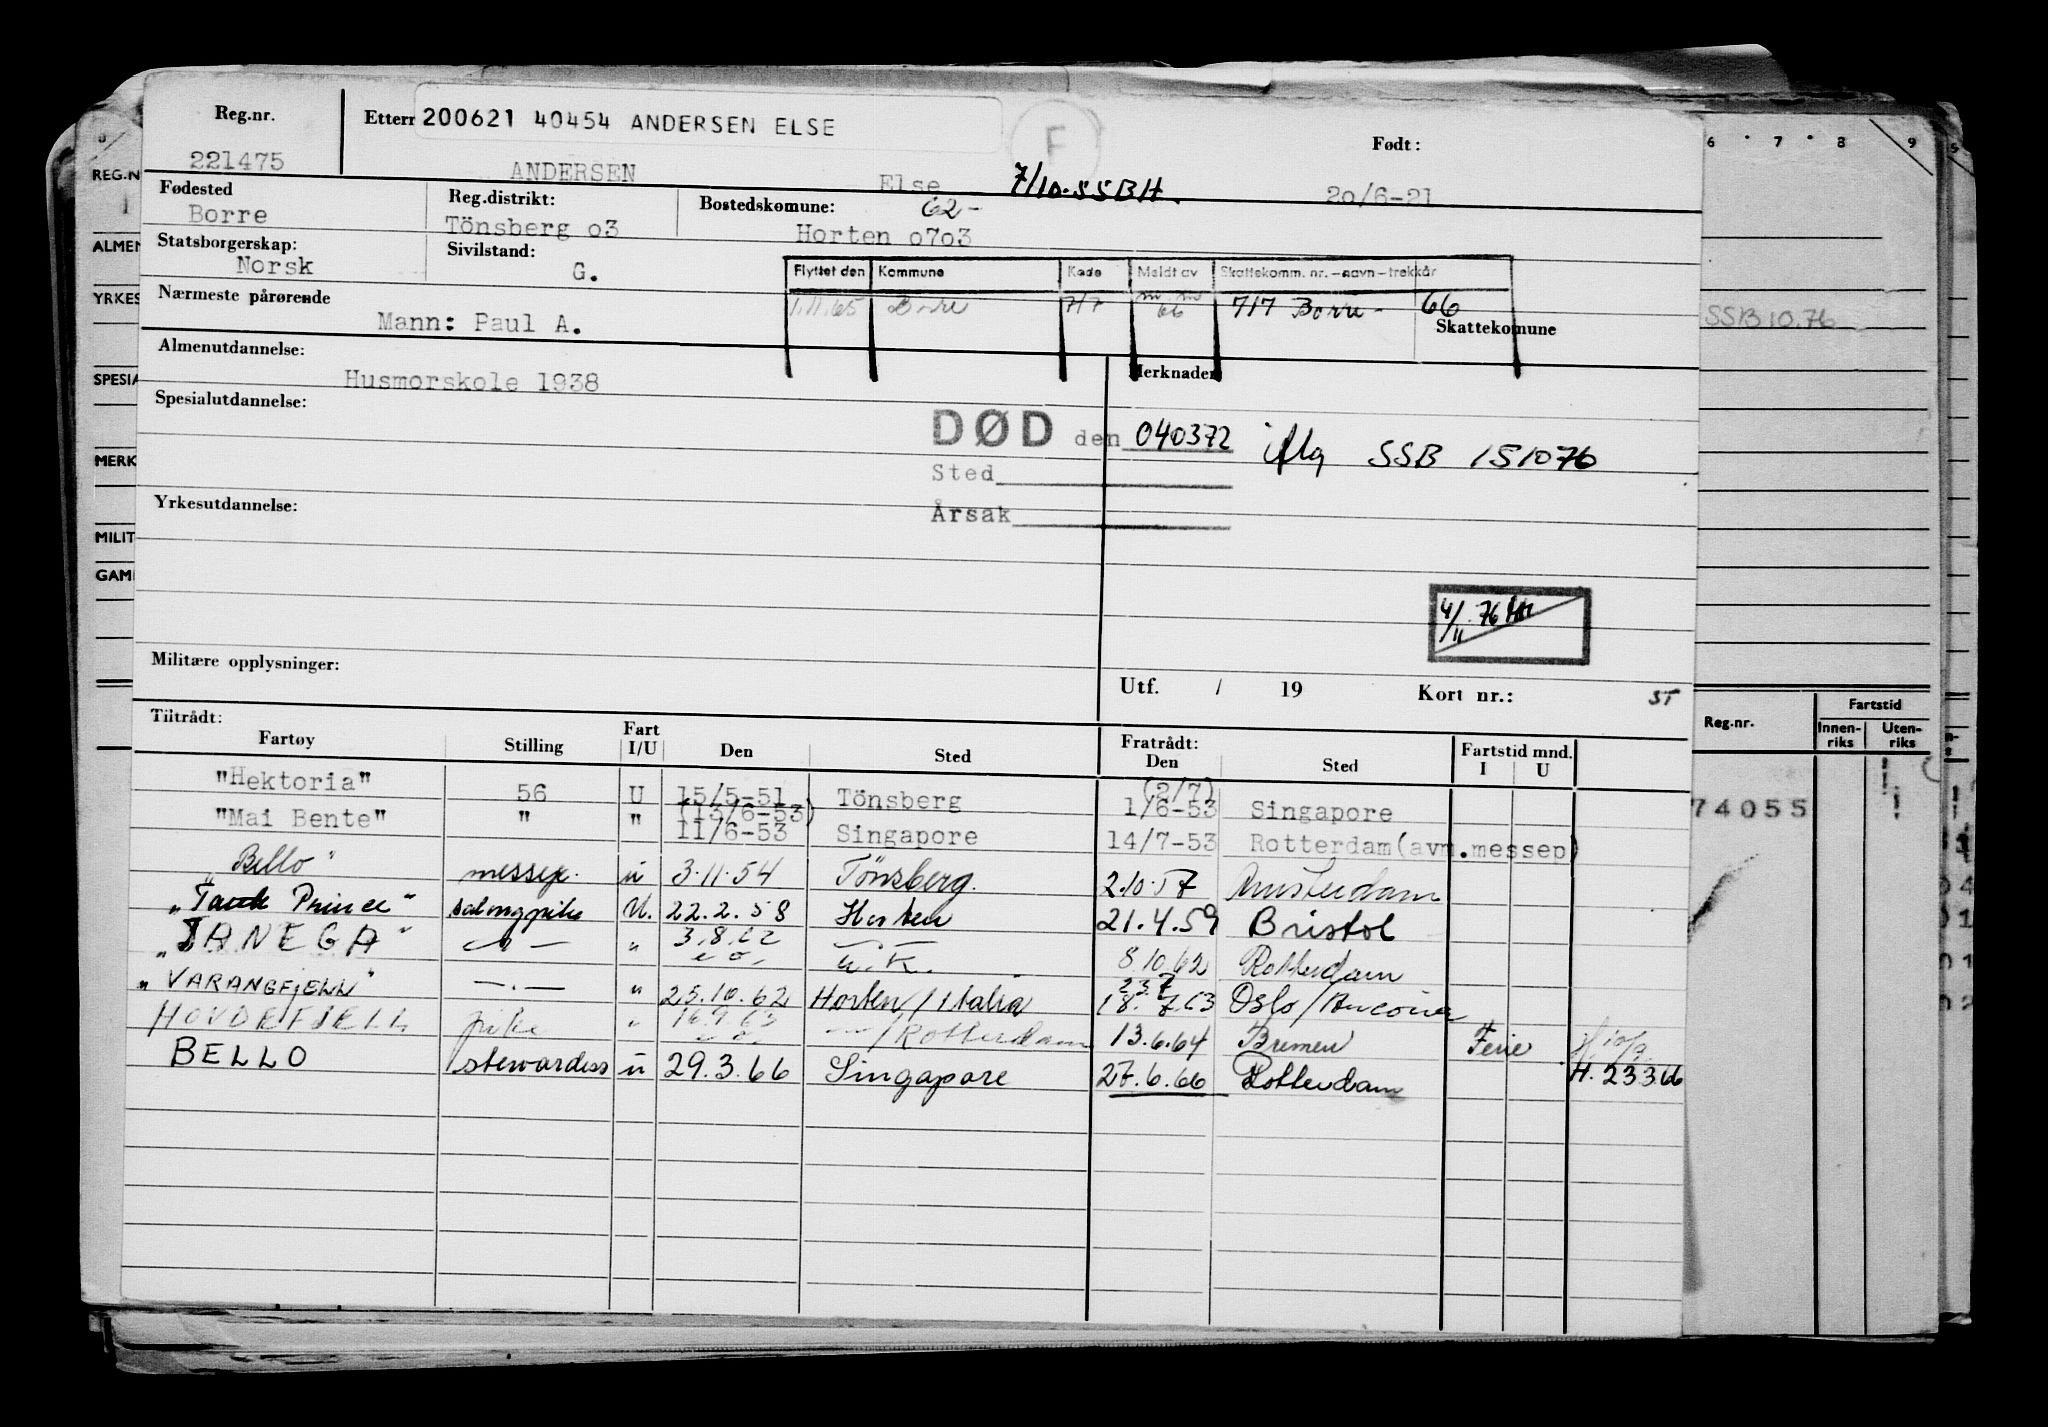 Reg.nr.
Etterr 200621 40454 ANDERSEN ELSE
F
Født:
221475
ANDERSEN
Else
7/10.55BH.
20/6-21
Fødested
Borre
Reg.distrikt:
Tönsberg o3
Bostedskomune:
62-
Horten o7o3
Statsborgerskap:
Norsk
Sivilstand:
G.
Flyttet den Kommune Kode Meldt av Skattekomm. nr.-navn-trekkår
1.11.65 Borre 717 66 717 Borre - 66
Nærmeste pårørende
Mann: Paul A.
Skattekomune
Almenutdannelse:
Husmorskole 1938
Merknader
Spesialutdannelse:
DØD den 040372 iflg SSB 151076
Sted
Årsak
Yrkesutdannelse:
4/11 76
Militære opplysninger:
Utf. / 19 Kort nr.: ST
Tiltrådt:
Fartøy Stilling Fart I/U Den Sted
Fratrådt:
Den Sted
Fartstid mnd.
I U
"Hektoria" 56 U 15/5-51 Tönsberg (2/7) 1/6-53 Singapore
"Mai Bente" " " (13/6-53) 11/6-53 Singapore 14/7-53 Rotterdam(avm.messep)
"Bello" messep. u 3.11.54 Tönsberg. 2.10.57 Amsterdam
"Tank Prince" salongpike U. 22.2.58 Horten 21.4.59 Bristol
"TANEGA" -"- " 3.8.62 U.K. 8.10.62 Rotterdam
"VARANGFJELL" -"- " 25.10.62 Horten/Italia 23.7 18.7.63 Oslo/Ancona
HOVDEFJELL pike " 16.9.63 /Rotterdam 13.6.64 Bremen Ferie
BELLO stewardess u 29.3.66 Singapore 27.6.66 Rotterdam H. 23.3.66
REG.N
ALMEN
YRKES
SPESIA
MERK
MILIT
GAM
6 7 8 9
SSB 10.76
Reg.nr.
Fartstid
Innen-
riks
Uten-
riks
74055